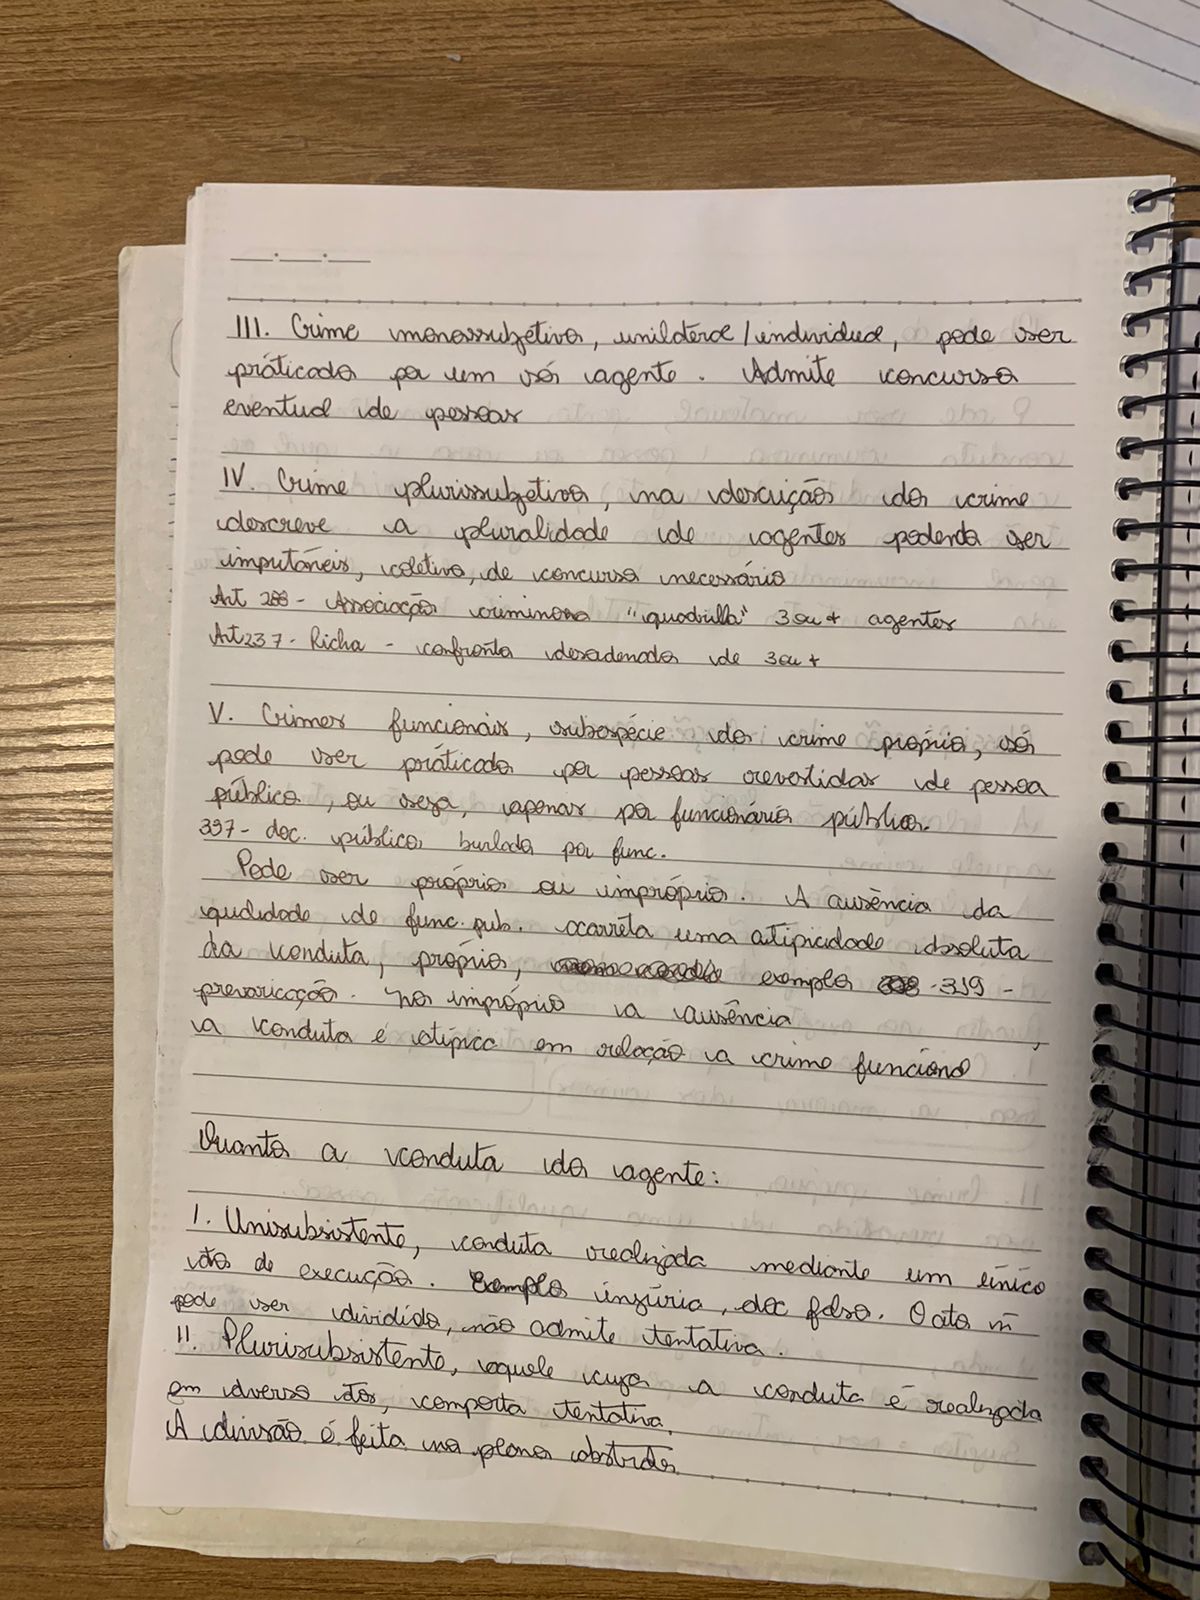 III. Crime monossubjetivo, unilateral/individual, pode ser
práticado por um só agente. Admite concurso
eventual de pessoas
IV. Crime plurissubjetivo, na descrição do crime
descreve a pluralidade de agentes podendo ser
imputáveis, coletivo, de concurso necessário
Art 288 - Associação criminosa "quadrilha" 3 ou + agentes
Art 237 - Richa - confronto desordenado de 3 ou +
V. Crimes funcionais, subespécie do crime próprio, só
pode ser práticado por pessoas revestidas de pessoa
pública, ou seja, apenas por funcionário público.
397 - doc. público burlado por func.
Pode ser próprio ou impróprio. A ausência da
qualidade de func. pub. acarreta uma atipicidade absoluta
da conduta, próprio, exemplo - 319 -
prevaricação. No impróprio a ausência ,
a conduta é atípica em relação a crime funcional
Quanto a conduta do agente:
I. Unisubsistente, conduta realizada mediante um único
ato de execução. Exemplo injúria, doc falso. O ato ñ
pode ser dividido, não admite tentativa.
II. Plurisubsistente, aquele cuja a conduta é realizada
em diverso atos, comporta tentativa.
A divisão é feita no plano abstrato